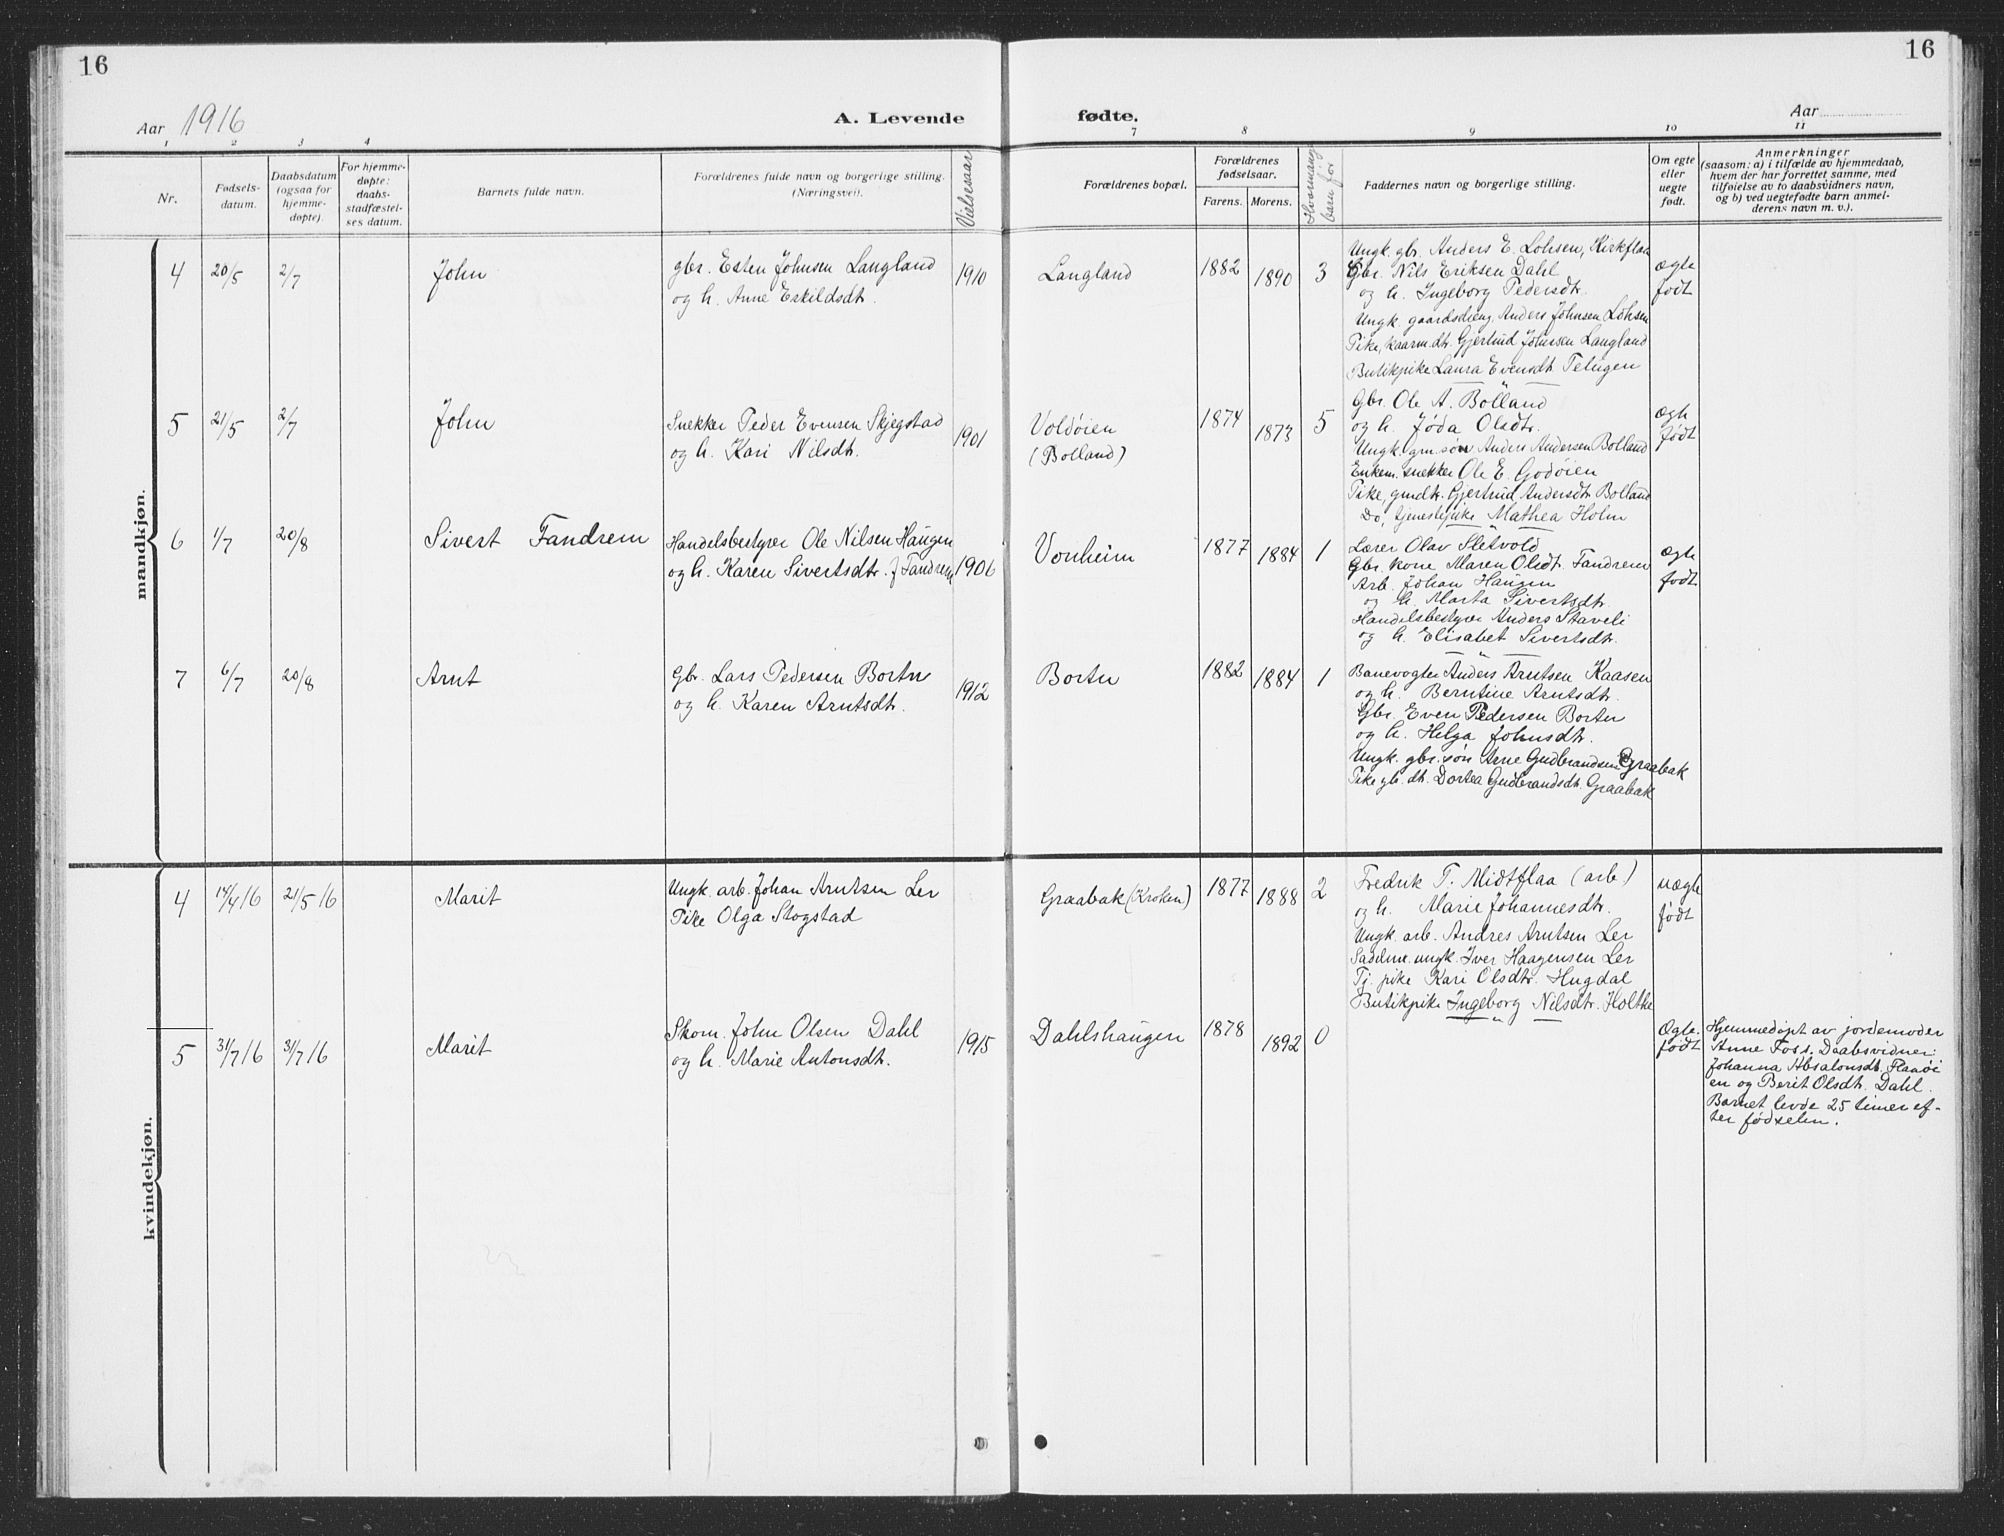 16
16
Aar 1916
A. Levende
fødte.
Aar
1 2 3 4
7 8 9 10 11
Nr.
Fødsels-
datum.
Daabsdatum
(ogsaa for
hjemme-
døpte).
For hjemme-
døpte:
daabs-
stadfæstel-
ses datum.
Barnets fulde navn.
Forældrenes fulde navn og borgerlige stilling.
(Næringsvei).
Vielsesaar
Forældrenes bopæl.
Forældrenes
fødselsaar.
Farens. Morens.
Hvormange
barn før
Faddernes navn og borgerlige stilling.
Om egte
eller
uegte
født.
Anmerkninger
(saasom: a) i tilfælde av hjemmedaab,
hvem der har forrettet samme, med
tilføielse av to daabsvidners navn,
og b) ved uegtefødte barn anmel-
derens navn m. v.).
mandkjøn.
4 20/5 2/7 John
gbr. Esten Johnsen Langland
og h. Anne Eskildsdtr.
1910
Langland
1882 1890 3
Ungk. gbr. Anders E. Lohsen, Kirkflaa
Gbr. Nils Eriksen Dahl
og h. Ingeborg Pedersdtr.
Ungk. gaardsdreng. Anders Johnsen Lohsen
Pike, kaarm.dtr. Gjertrud Johnsen Langland
Butikpike Laura Evensdtr. Telugen
ægte
født
5 21/5 2/7 John
Snekker Peder Evensen Skjegstad
og h. Kari Nilsdtr.
1901
Voldøien
(Bolland)
1874 1873 5
Gbr. Ole A. Bolland
og h. Jøda Olsdtr.
Ungk. gm. søn Anders Andersen Bolland
Enkem. snekker Ole E. Godøien
Pike, gmdtr. Gjertrud Andersdtr. Bolland
Do, tjenestepike Mathea Holm
ægte
født
6 1/7 20/8 Sivert Fandrem
Handelsbestyrer Ole Nilsen Haugen
og h. Karen Sivertsdtr. f. Fandrem
1906
Vonheim
1877 1884 1
Lærer Olav Sletvold
Gbr. kone Maren Olsdt. Fandrem
Arb. Johan Haugen
og h. Marta Sivertsdtr.
Handelsbestyrer Anders Staveli
og h. Elisabet Sivertsdtr.
ægte
født
7 6/7 20/8 Arnt
Gbr. Lars Pedersen Bortn
og h. Karen Arntsdtr.
1912
Bortn
1882 1884 1
Banevogter Anders Arntsen Kaasen
og h. Berntine Arntsdtr.
Gbr. Even Pedersen Bortn
og h. Helga Johnsdtr.
Ungk. gbr. søn Arne Gudbrandsen Graabak
Pike gb. dtr. Dortea Gudbrandsdtr. Graabak
kvindekjøn.
4 14/4 16 21/5 16 Marit
Ungk. arb. Johan Arntsen Ler
Pike Olga Stogstad
Graabak (Kroken)
1877 1888 2
Fredrik T. Midtflaa (arb)
og h. Marie Johannesdtr.
Ungk. arb. Andres Arntsen Ler
Sadelm. ungk. Iver Haagensen Ler
Tj. pike Kari Olsdtr. Hugdal
Butikpike Ingeborg Nilsdtr. Holthe
uægte
født
5 31/7 16 31/7 16 Marit
Skom. John Olsen Dahl
og h. Marie Antonsdtr.
1915
Dahlshaugen
1878 1892 0
Ægte
født
Hjemmedøpt av jordemoder
Anne Foss. Daabsvidner:
Johanna Absalonsdt. Flaaøi
en og Berit Olsdtr. Dahl.
Barnet levde 25 timer ef-
ter fødselen.